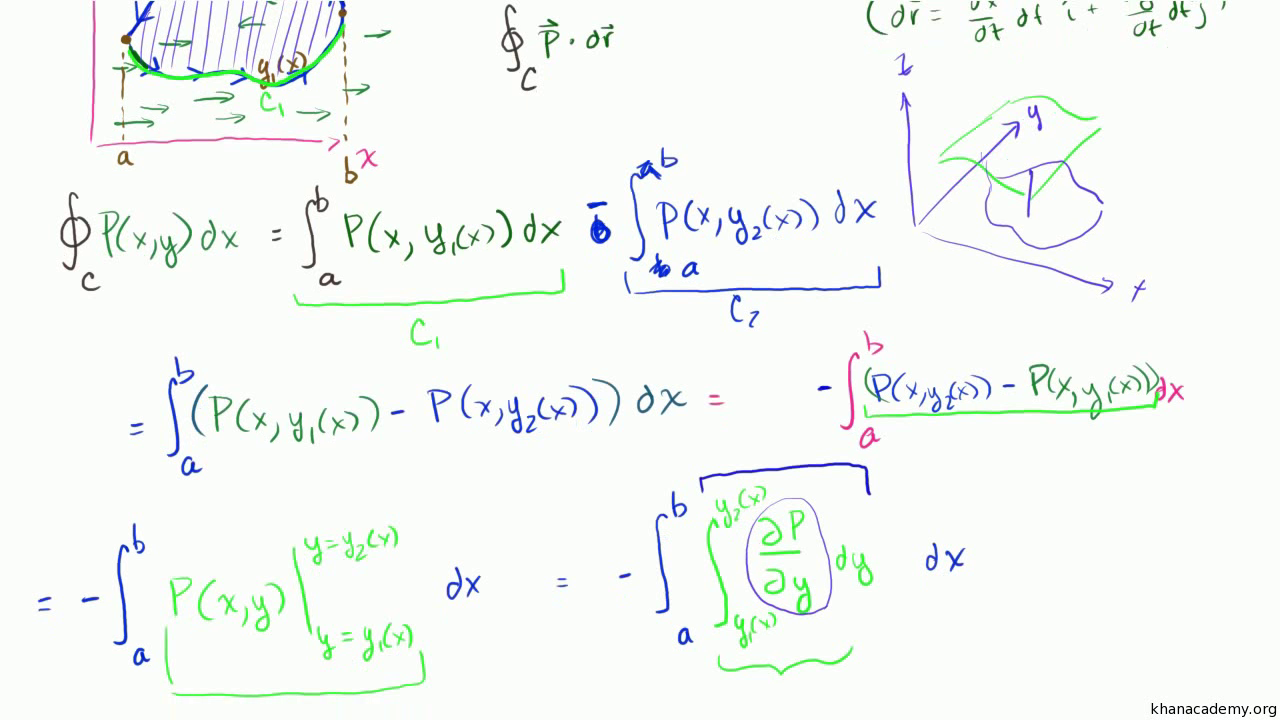 y₁(x)
C₁
a
b
x
∮_C P⃗ · dr⃗
(dr⃗ = dx/dt dt i + dt j)
z
y
x
∮_C P(x,y)dx = ∫_a^b P(x, y₁(x))dx - ∫_a^b P(x,y₂(x)) dx
C₁
C₂
= ∫_a^b (P(x,y₁(x)) - P(x,y₂(x))) dx = - ∫_a^b (P(x,y₂(x)) - P(x,y₁(x)))dx
= - ∫_a^b P(x,y) |_{y = y₁(x)}^{y=y₂(x)} dx = - ∫_a^b ∫_{y₁(x)}^{y₂(x)} ∂P/∂y dy dx
khanacademy.org